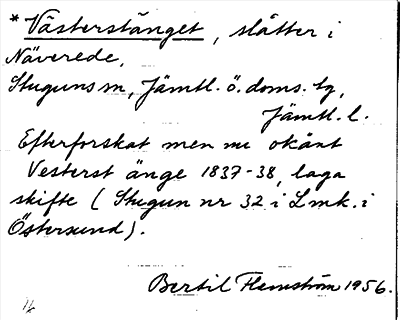 * Västerstänget, slåtter i
Näverede,
Stuguns sn, Jämtl. ö. doms. tg,
Jämtl. l.
Efterforskat men nu okänt
Vesterst änge 1837-38, laga
skifte (Stugun nr 32 i Lmk. i
Östersund).
Bertil Flemström 1956.